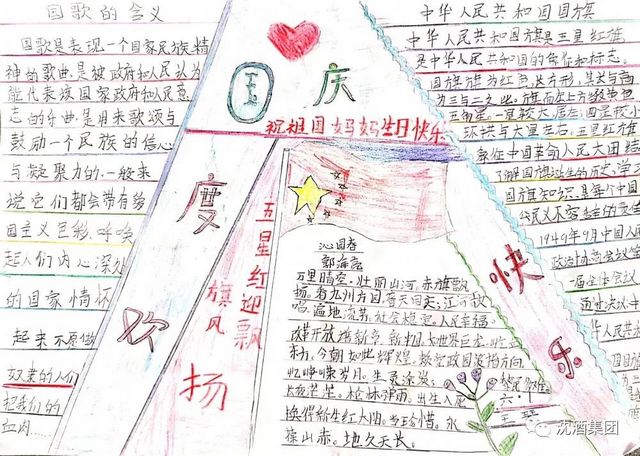 国歌的含义
国歌是表现一个国家民族精
神的歌曲.是被政府和人民认为
能代表该国家政府和人民意
志的乐曲.是用来歌颂与
鼓励一个民族的信心
与凝聚力的.一般来
说它们都会带有爱
国主义色彩.呼唤
起人们内心深处
的国家情怀
起来不愿做
奴隶的人们
把我们的
血肉……
国庆
祝祖国妈妈生日快乐
欢度
快乐
五星红旗迎风飘扬
沁园春
万里晴空.壮丽山河.赤旗飘
扬.看九州方圆.
唱.遍地流芳.社会稳定.人民幸福.
改革开放
东方.今朝如此辉煌.
忆峥嵘岁月.生灵涂炭.
长夜茫茫.枪林弹雨.出生入死
换得新生红太阳.当珍惜.永
葆山赤.地久天长.
中华人民共和国国旗
中华人民共和国国旗是五星红旗
是中华人民共和国的象征和标志.
国旗旗为红色.长方形.其长与高
为三与二之比.旗面左上方缀黄色
五角星.一星较大.居左;四星较小
环拱与大星右.五星红旗
象征中国革命人民大团结
了解国旗诞生的历史.学习
国旗知识.是每个中国
公民义不容辞的责任
1949年9月中国人民
政治协商会议第
一届全体会议
通过决议
华人民共
沈酒集团